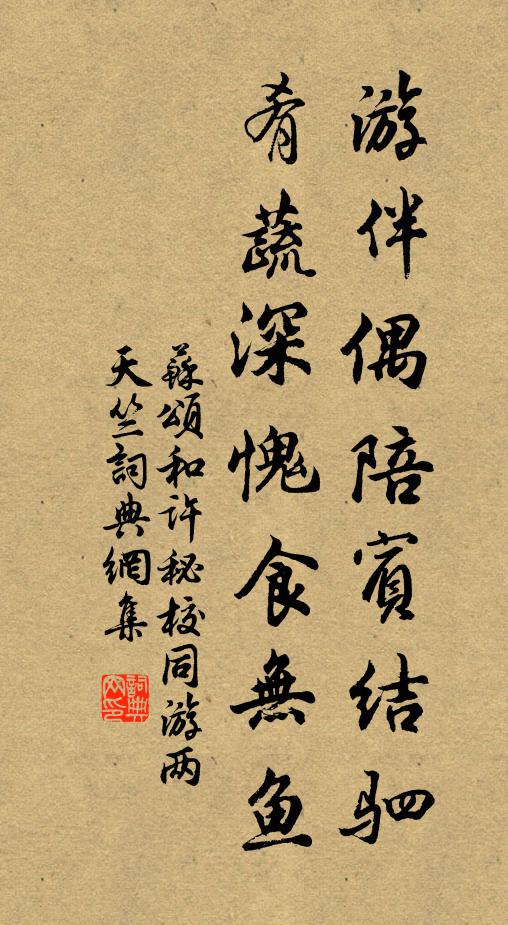 游伴偶陪賓结驷
肴蔬深愧食無鱼
蘇頌和许秘校同游两
天竺詞典網集
詞典網印